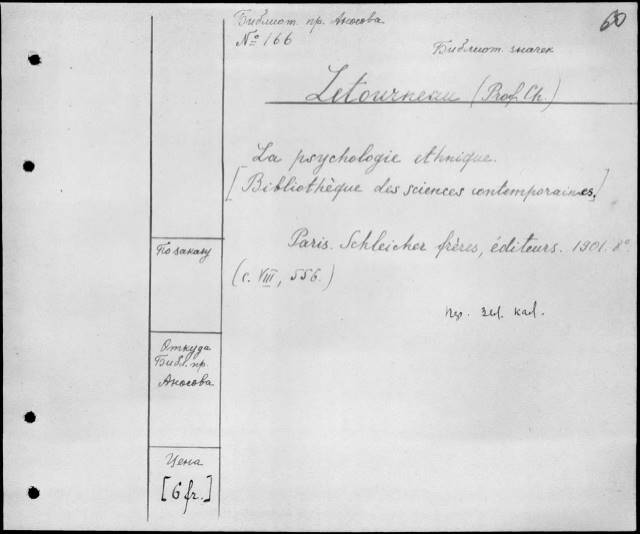 60
Библиот. пр. Аносова
№ 166
Библиот. значек
Letourneau (Prof. Ch.)
La psychologie ethnique.
[Bibliothèque des sciences contemporaines.]
Paris. Schleicher frères, éditeurs. 1901. 8°
(c. VIII, 556.)
По заказу
Откуда
Библ. пр.
Аносова
Цена
[6 fr.]